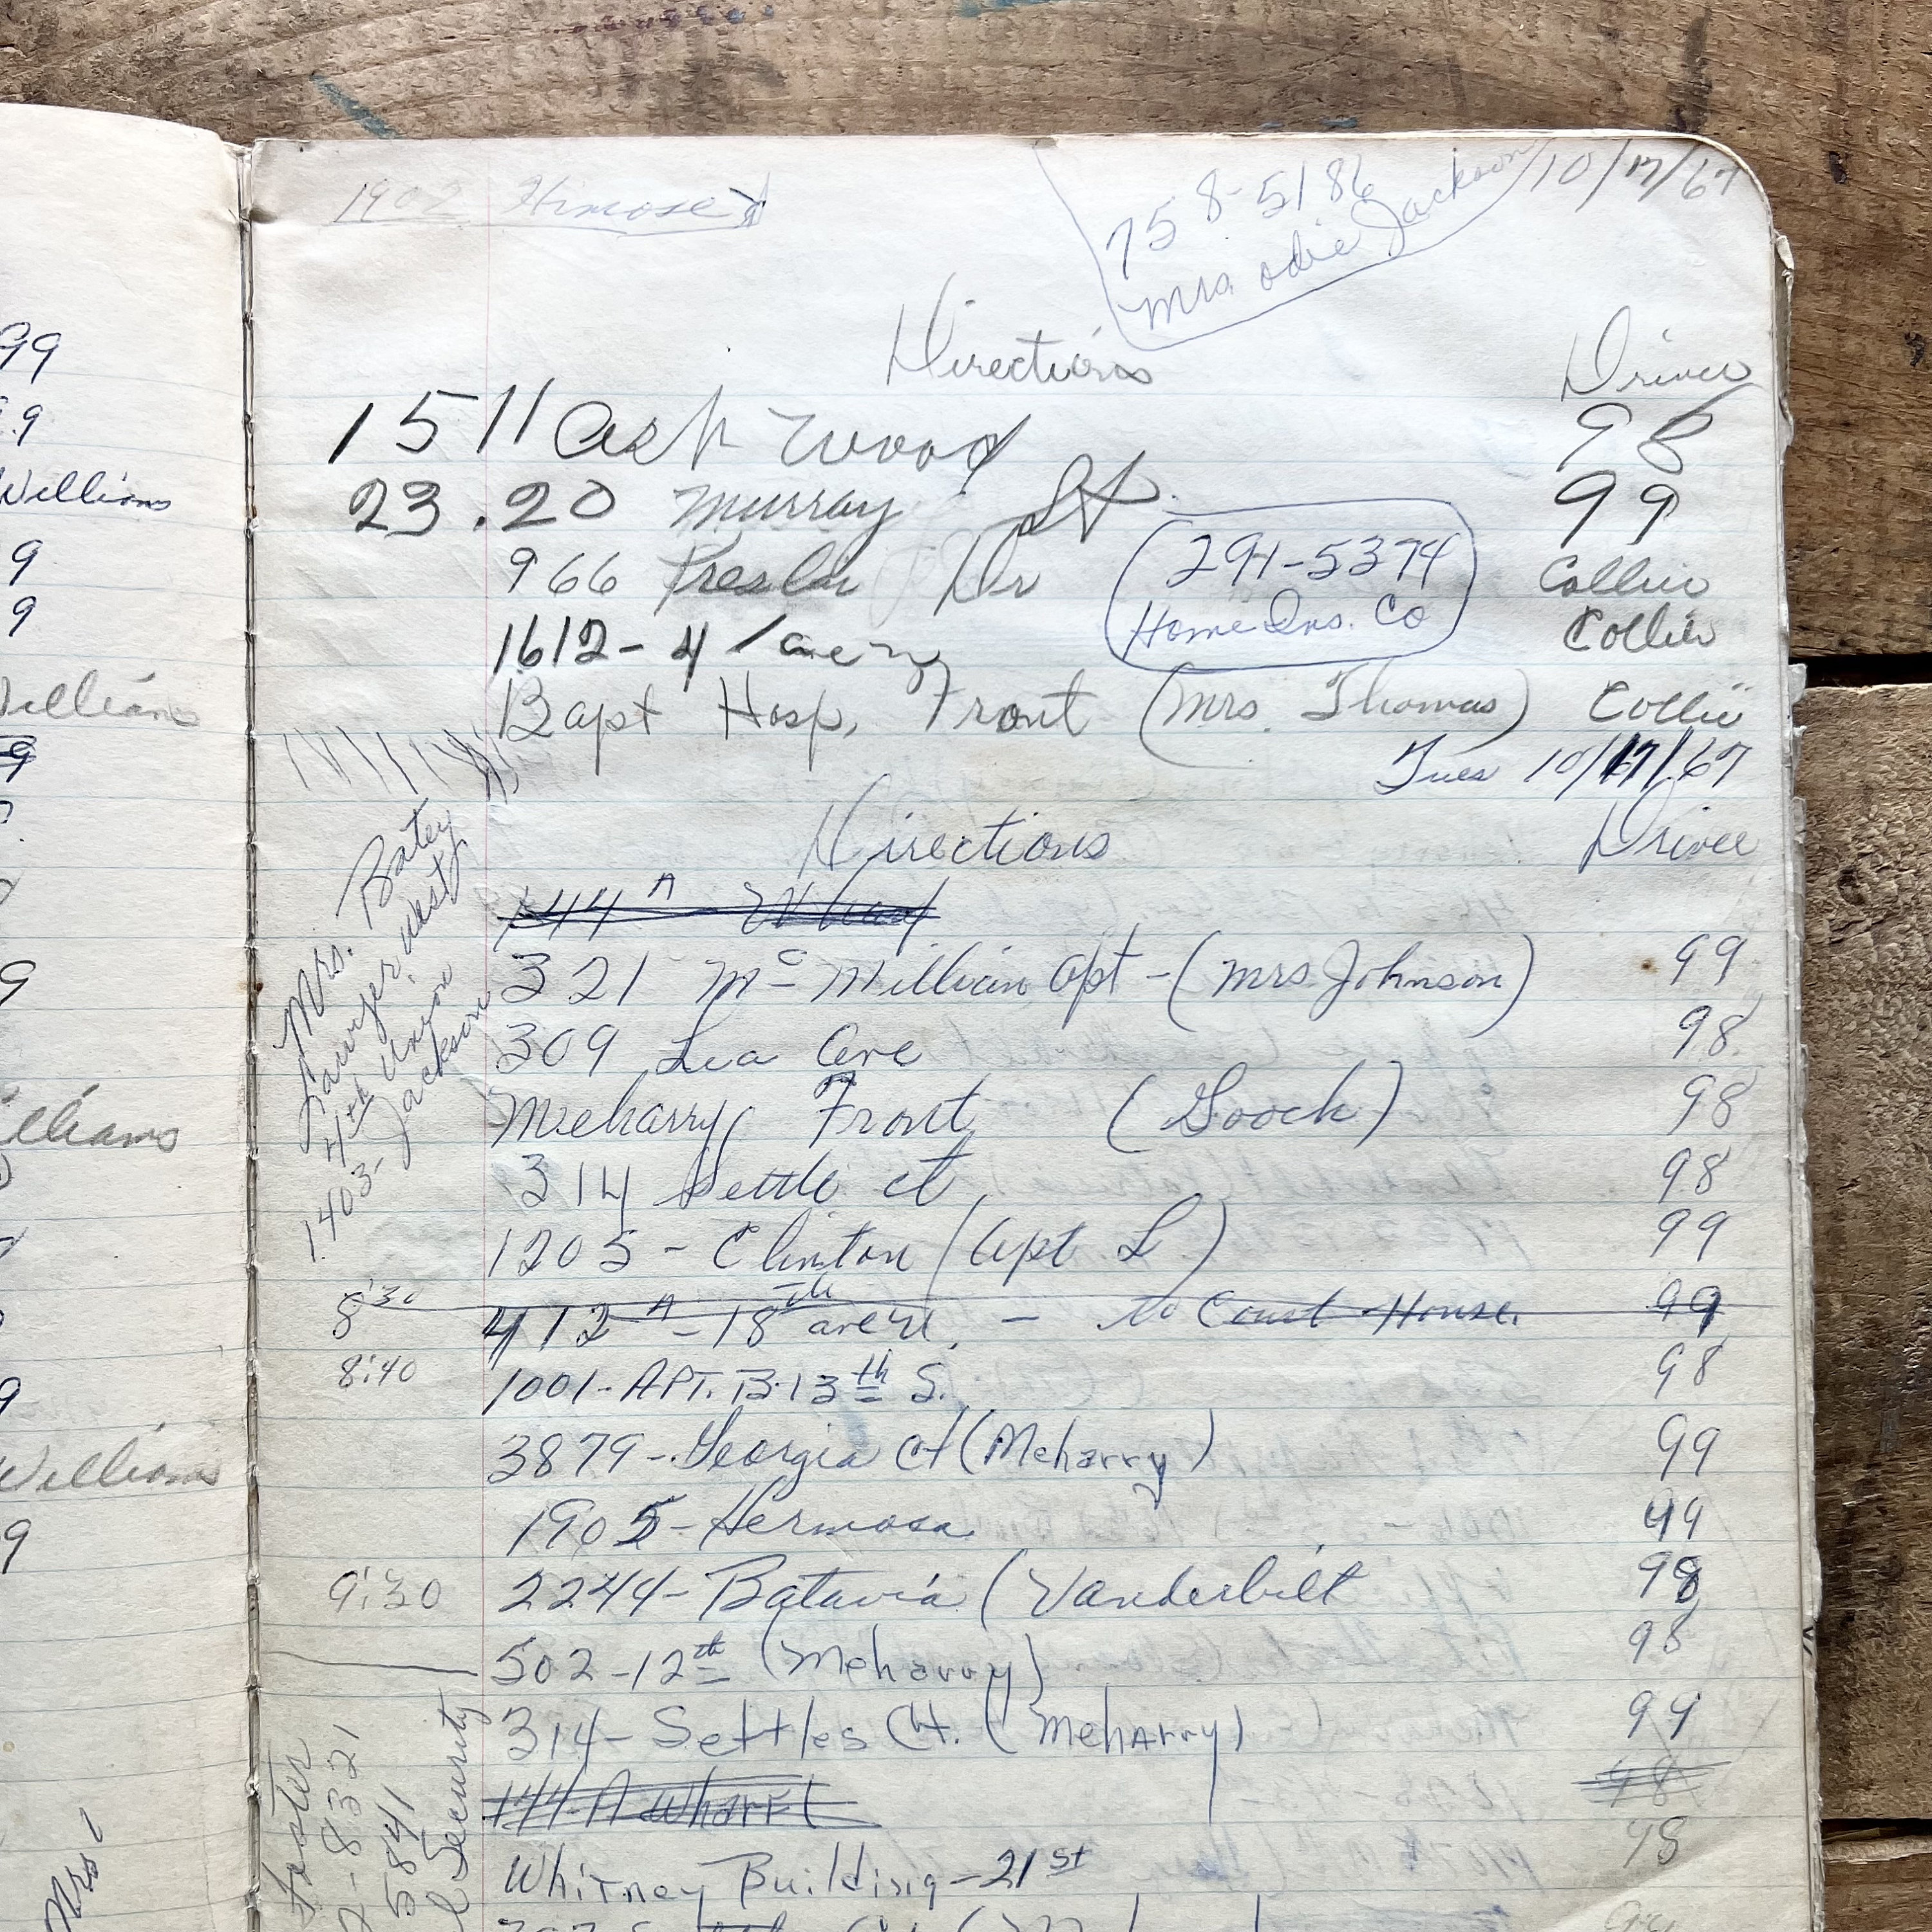 1902 Himosed
758-5186
Mrs. Odie Jackson
10/17/67
Directions Driver
1511 Ash wood 98
23.20 Murray St. 99
966 Dr Collier
291-5374
Home Ins. Co
1612-4 / ave Collier
Bapt Hosp. Front (Mrs. Thomas) Collie
Tues 10/17/67
Directions Driver
144 A Wharf
321 Mc Millian Apt - (Mrs Johnson) 99
309 Lea Ave 98
Meharry Front (Gooch) 98
314 Settle ct 98
1205 - Clinton (Apt L) 99
8:30 412 A - 18th ave N. - to Court House. 99
8:40 1001 - APT. B-13th S. 98
3879 - Georgia Ct (Meharry) 99
1905 - Hermosa 99
9:30 2244 - Batavia (Vanderbilt 98
502 - 12th (Meharry) 98
314 - Settles Ct. (Meharry) 99
144-A Wharf 98
Whitney Building - 21st 98
Mrs. Batey
Lawyer West
4th Union
1403 - Jackson
Foster
- 8321
5841
Security
99
9
Williams
9
9
Williams
9
9
Williams
9
Williams
9
Mrs